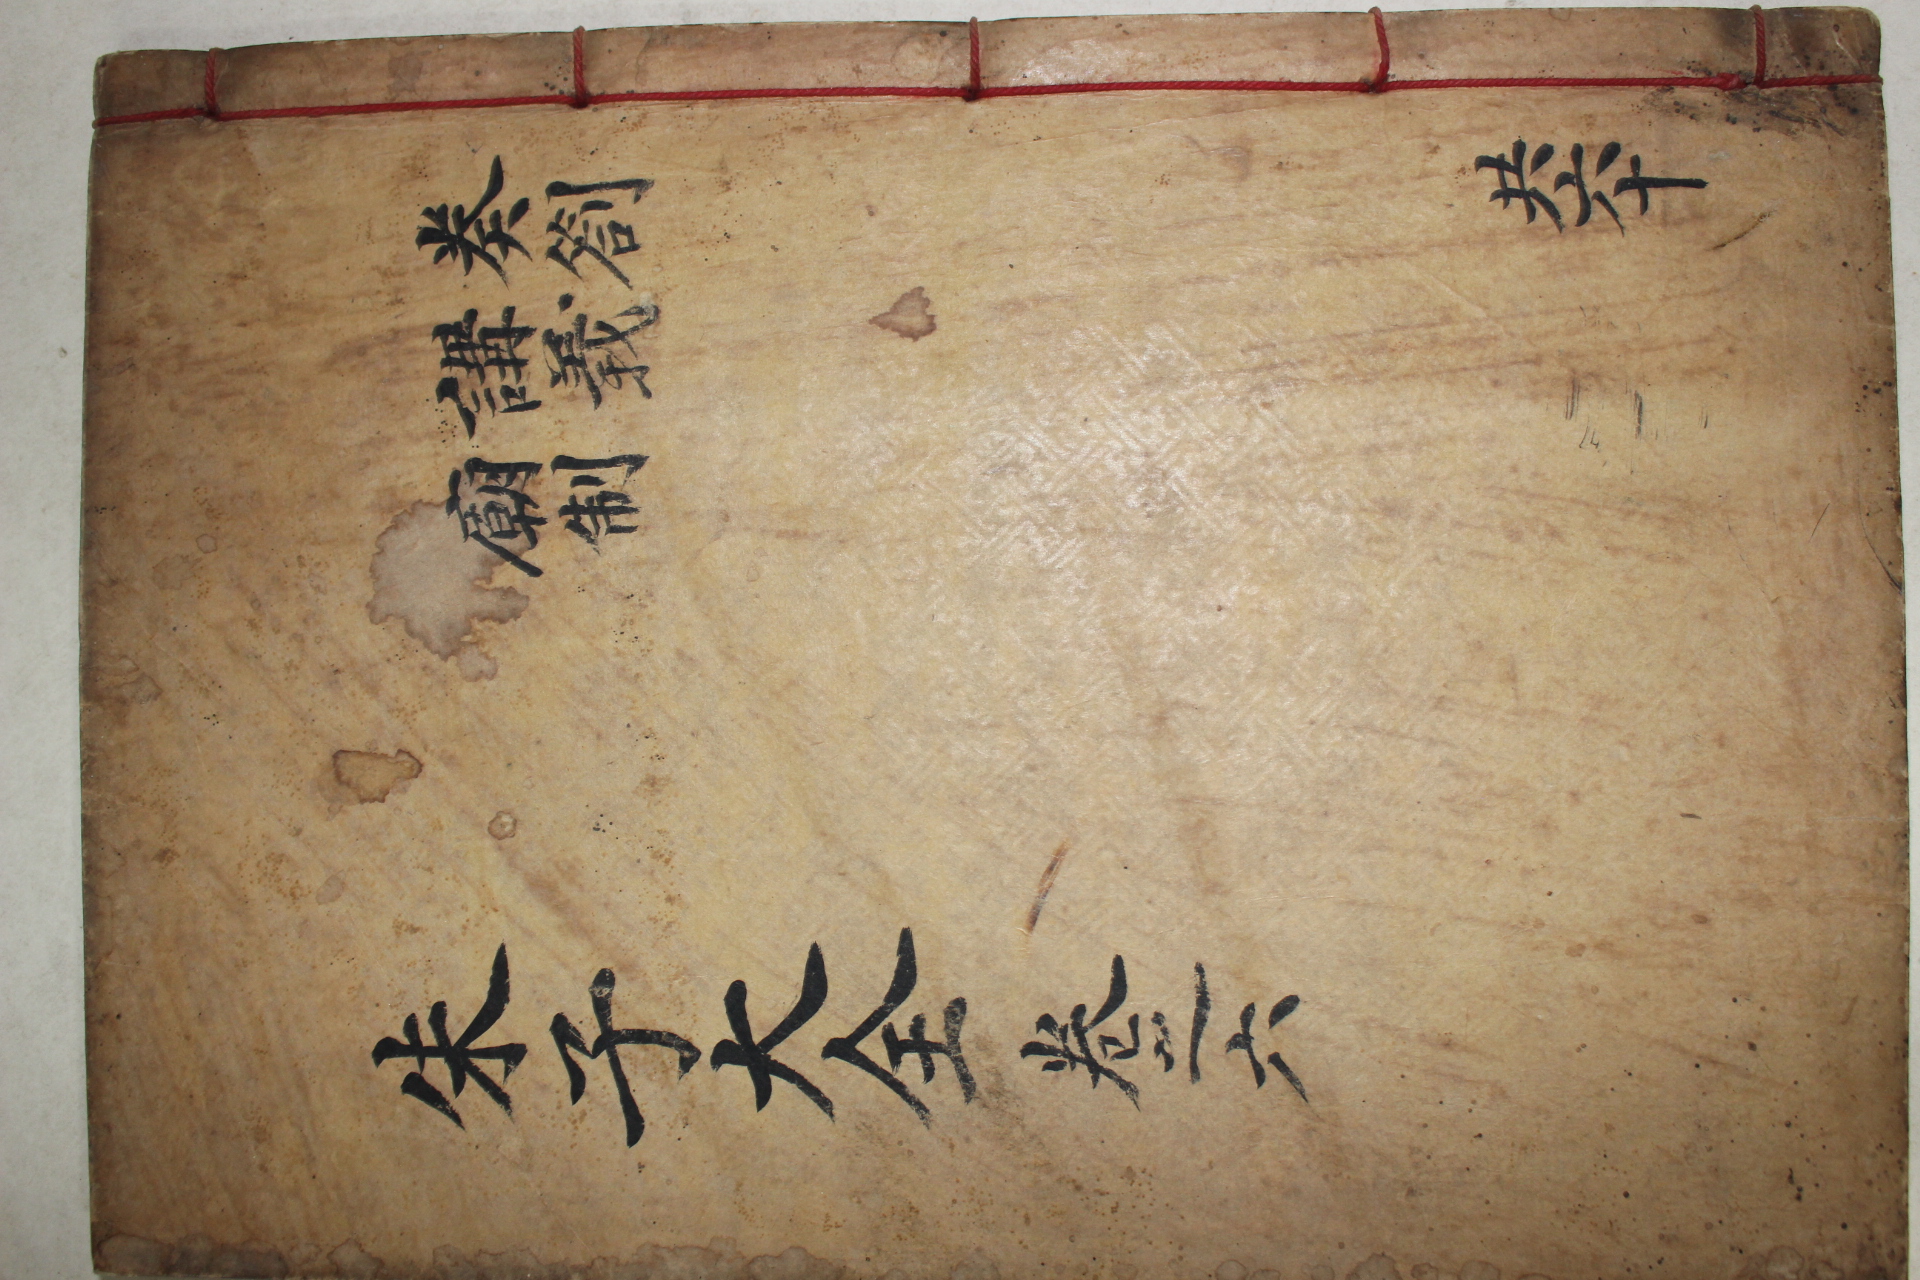 奏劄
講義
廟制
朱子大全 卷之六
共六十